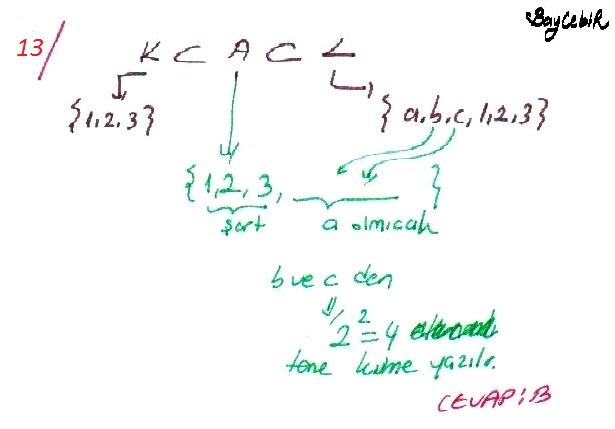 BayCebiR
13/
K ⊂ A ⊂ L
{1,2,3}
{a,b,c,1,2,3}
{1,2,3, }
şart a olmıcak
b ve c den
2² = 4
tane küme yazılır.
CEVAP: B